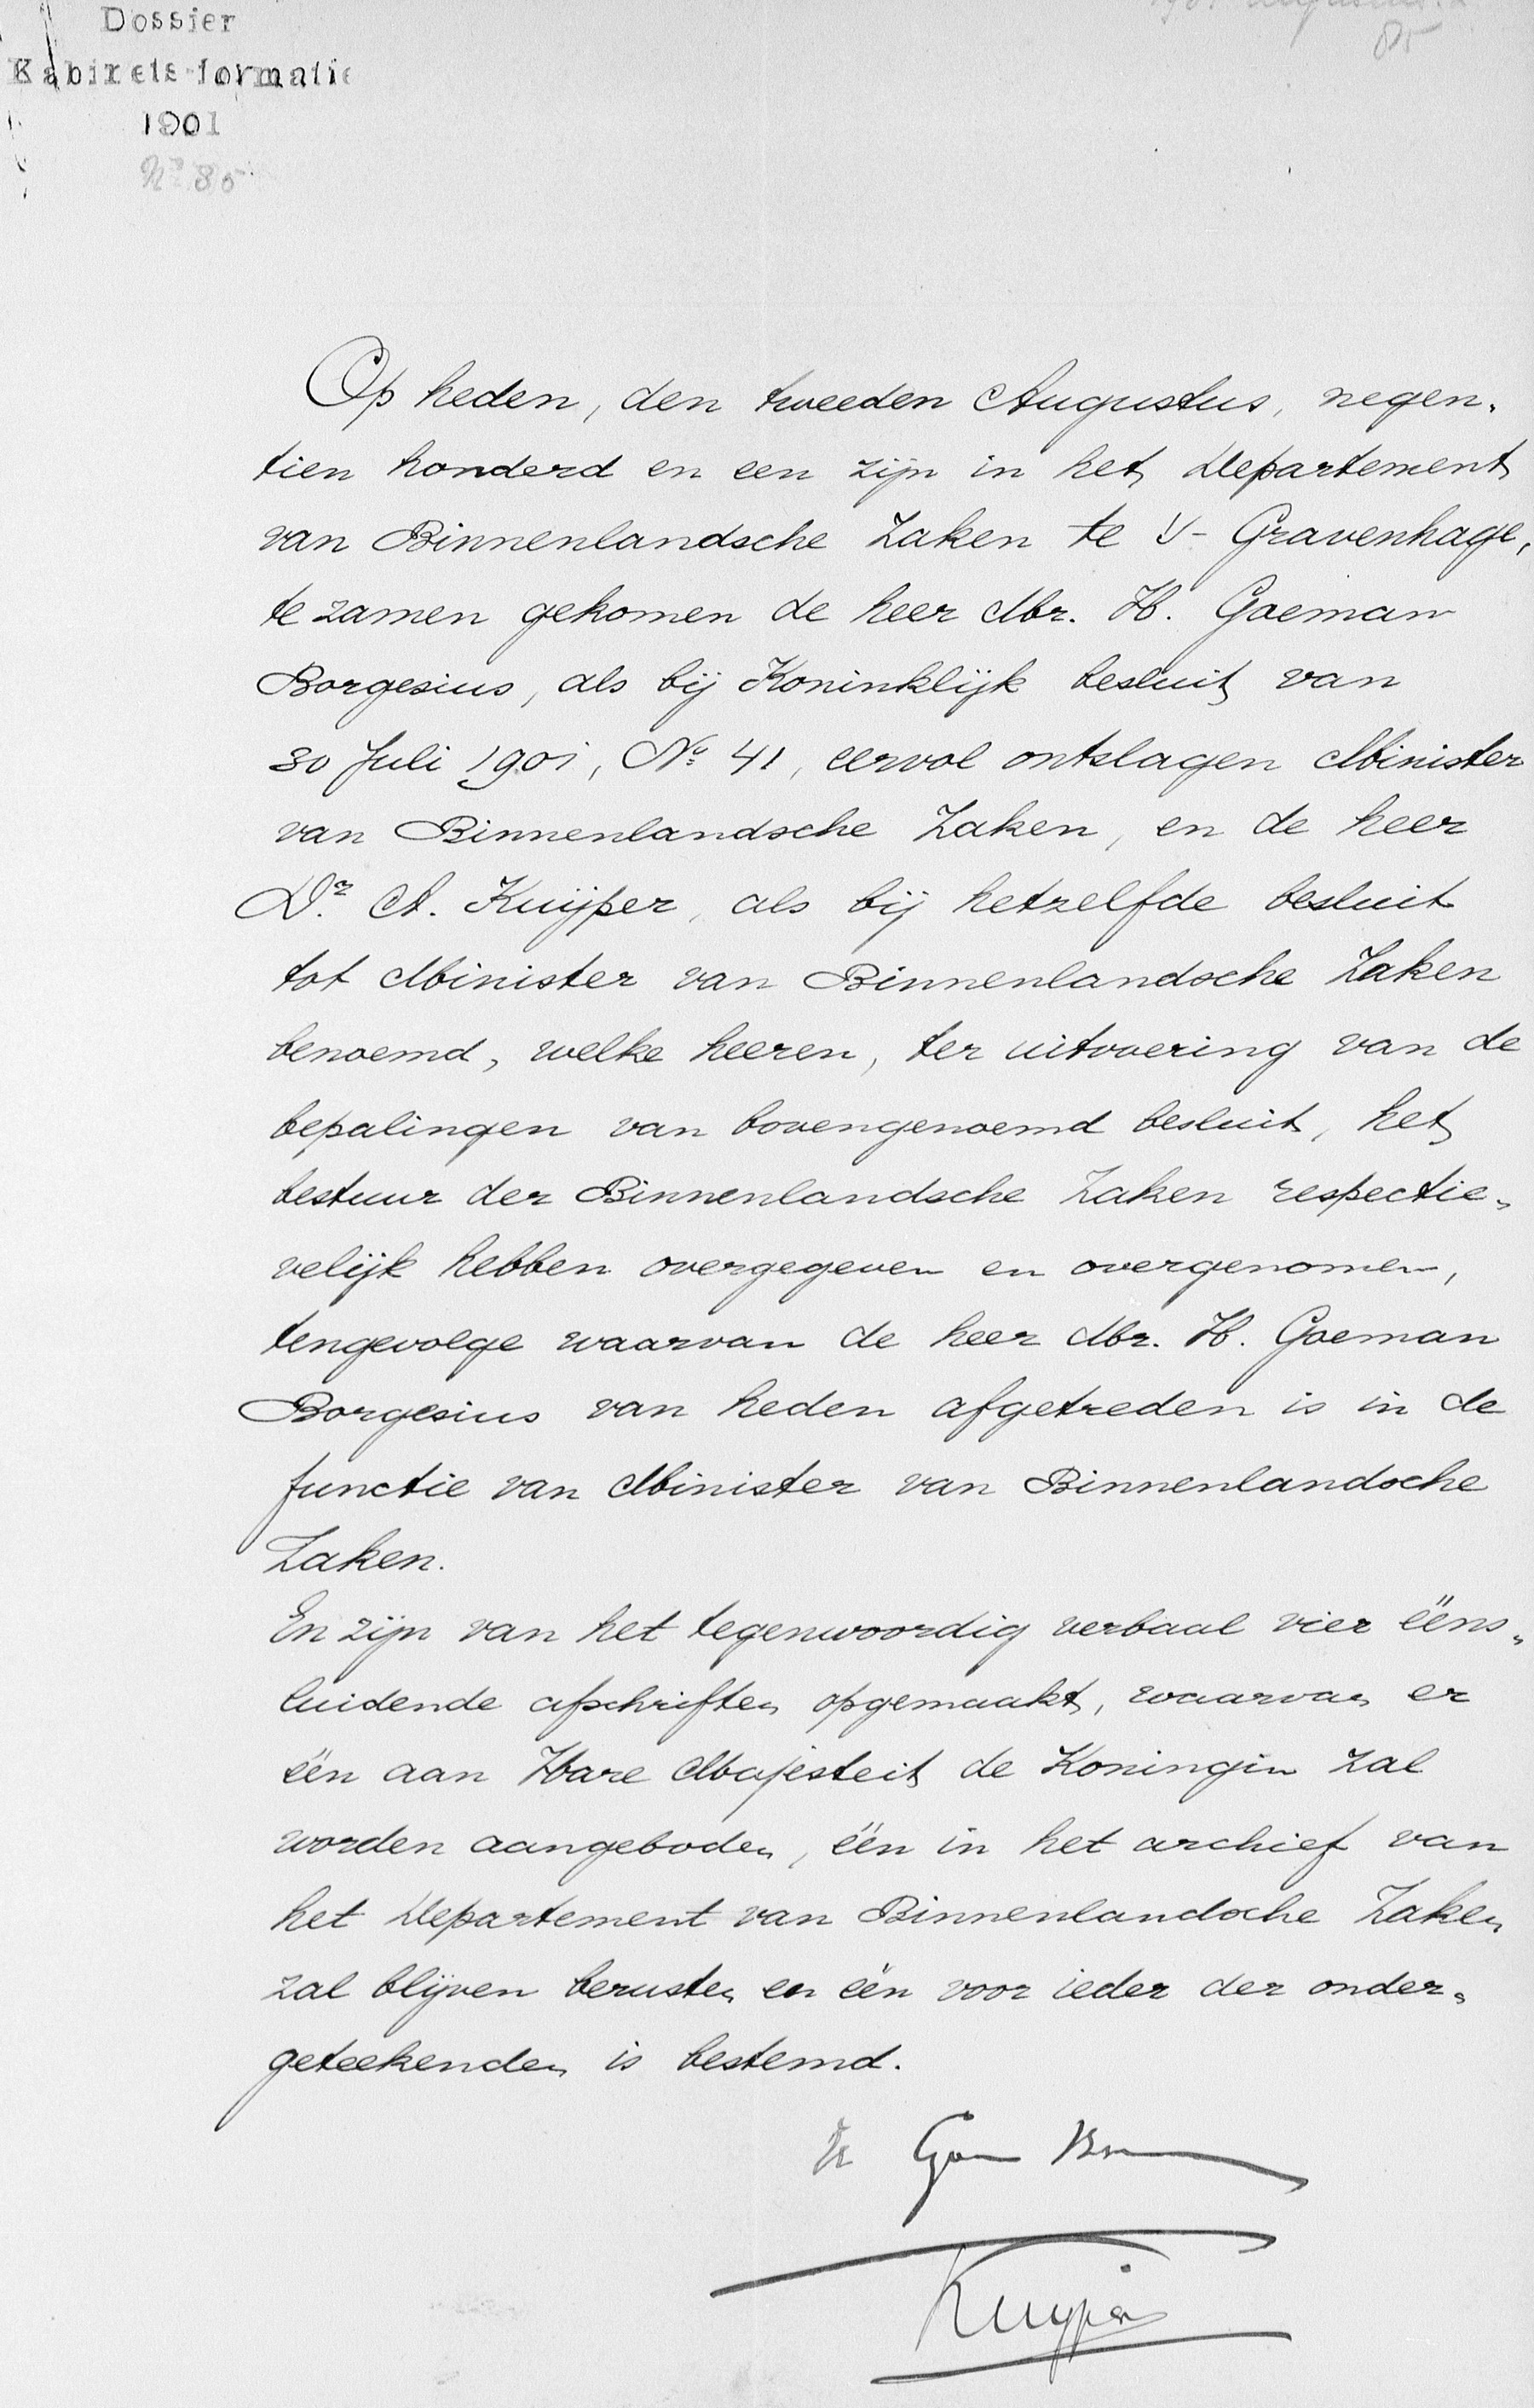 Dossier
Kabinets-formatie
1901
No. 85
85
Op heden, den tweeden Augustus, negen-
tien honderd en een zijn in het Departement
van Binnenlandsche Zaken te 's-Gravenhage,
te zamen gekomen de heer Mr. H. Goeman
Borgesius, als bij Koninklijk besluit van
30 Juli 1901, No. 41, eervol ontslagen Minister
van Binnenlandsche Zaken, en de heer
Dr. A. Kuijper, als bij hetzelfde besluit
tot Minister van Binnenlandsche Zaken
benoemd, welke heeren, ter uitvoering van de
bepalingen van bovengenoemd besluit, het
bestuur der Binnenlandsche Zaken respectie-
velijk hebben overgegeven en overgenomen,
tengevolge waarvan de heer Mr. H. Goeman
Borgesius van heden afgetreden is in de
functie van Minister van Binnenlandsche
Zaken.
En zijn van het tegenwoordig verbaal vier ééns-
luidende afschriften opgemaakt, waarvan er
één aan Hare Majesteit de Koningin zal
worden aangeboden, één in het archief van
het Departement van Binnenlandsche Zaken
zal blijven berusten en één voor ieder der onder-
geteekenden is bestemd.
Kuyper